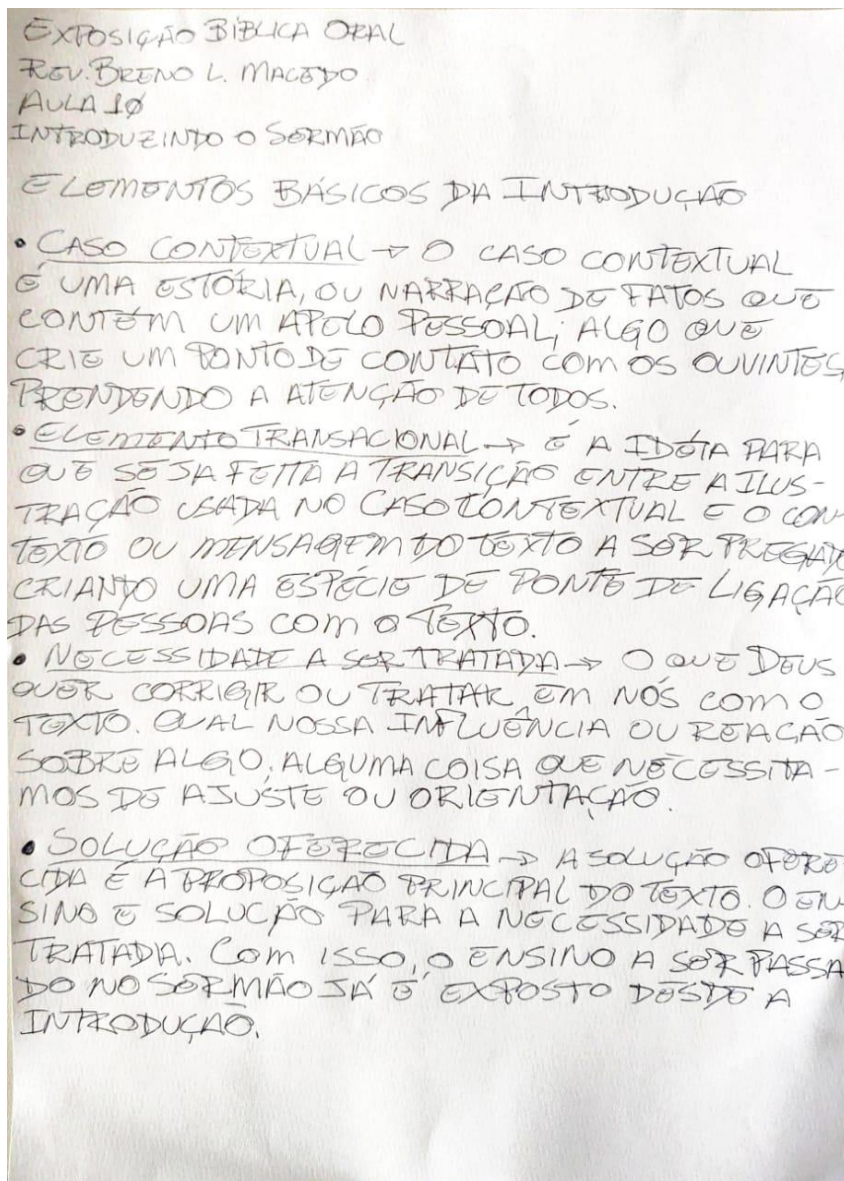 EXPOSIÇÃO BÍBLICA ORAL
REV. BRENO L. MACEDO
AULA 10
INTRODUZINDO O SERMÃO
ELEMENTOS BÁSICOS DA INTRODUÇÃO
• CASO CONTEXTUAL → O CASO CONTEXTUAL
É UMA ESTÓRIA, OU NARRAÇÃO DE FATOS QUE
CONTÉM UM APELO PESSOAL; ALGO QUE
CRIE UM PONTO DE CONTATO COM OS OUVINTES,
PRENDENDO A ATENÇÃO DE TODOS.
• ELEMENTO TRANSACIONAL → É A IDÉIA PARA
QUE SEJA FEITA A TRANSIÇÃO ENTRE A ILUS-
TRAÇÃO USADA NO CASO CONTEXTUAL E O CON-
TEXTO OU MENSAGEM DO TEXTO A SER PREGADO
CRIANDO UMA ESPÉCIE DE PONTE DE LIGAÇÃO
DAS PESSOAS COM O TEXTO.
• NECESSIDADE A SER TRATADA → O QUE DEUS
QUER CORRIGIR OU TRATAR, EM NÓS COM O
TEXTO. QUAL NOSSA INFLUÊNCIA OU REAÇÃO
SOBRE ALGO; ALGUMA COISA QUE NECESSITA-
MOS DE AJUSTE OU ORIENTAÇÃO.
• SOLUÇÃO OFERECIDA → A SOLUÇÃO OFERE
CIDA É A PROPOSIÇÃO PRINCIPAL DO TEXTO. O EN-
SINO E SOLUÇÃO PARA A NECESSIDADE A SER
TRATADA. COM ISSO, O ENSINO A SER PASSA
DO NO SERMÃO JÁ É EXPOSTO DESDE A
INTRODUÇÃO.